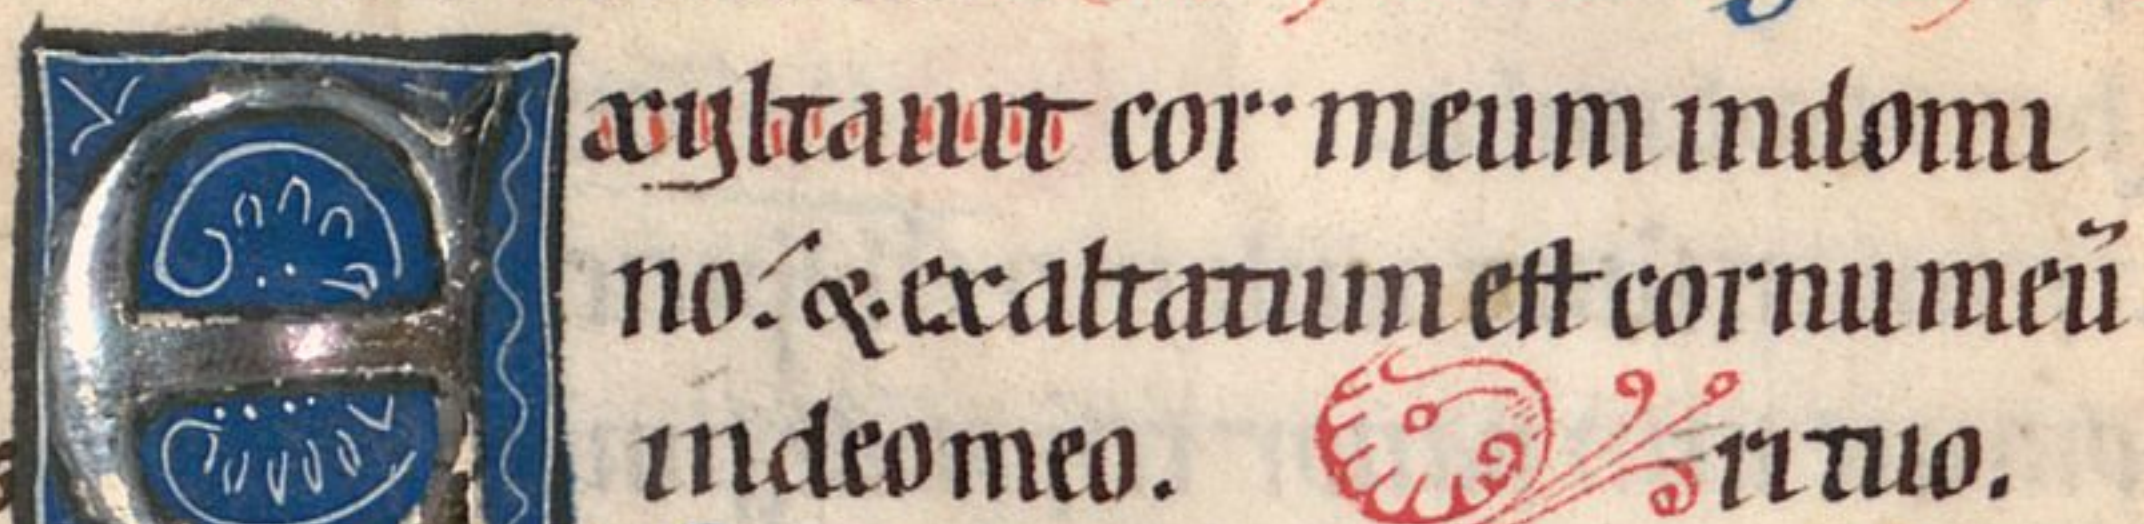 Exultauit cor meum indomi
no. & exaltatum est cornu meū
indeo meo. ri tuo.